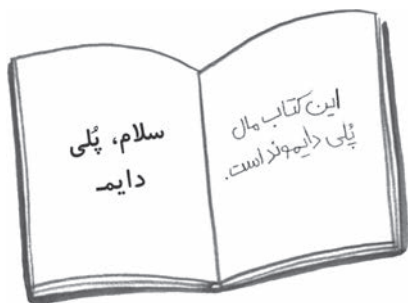 این کتاب مال
پُلی دایموند است.
سلام، پُلی
دایمـ